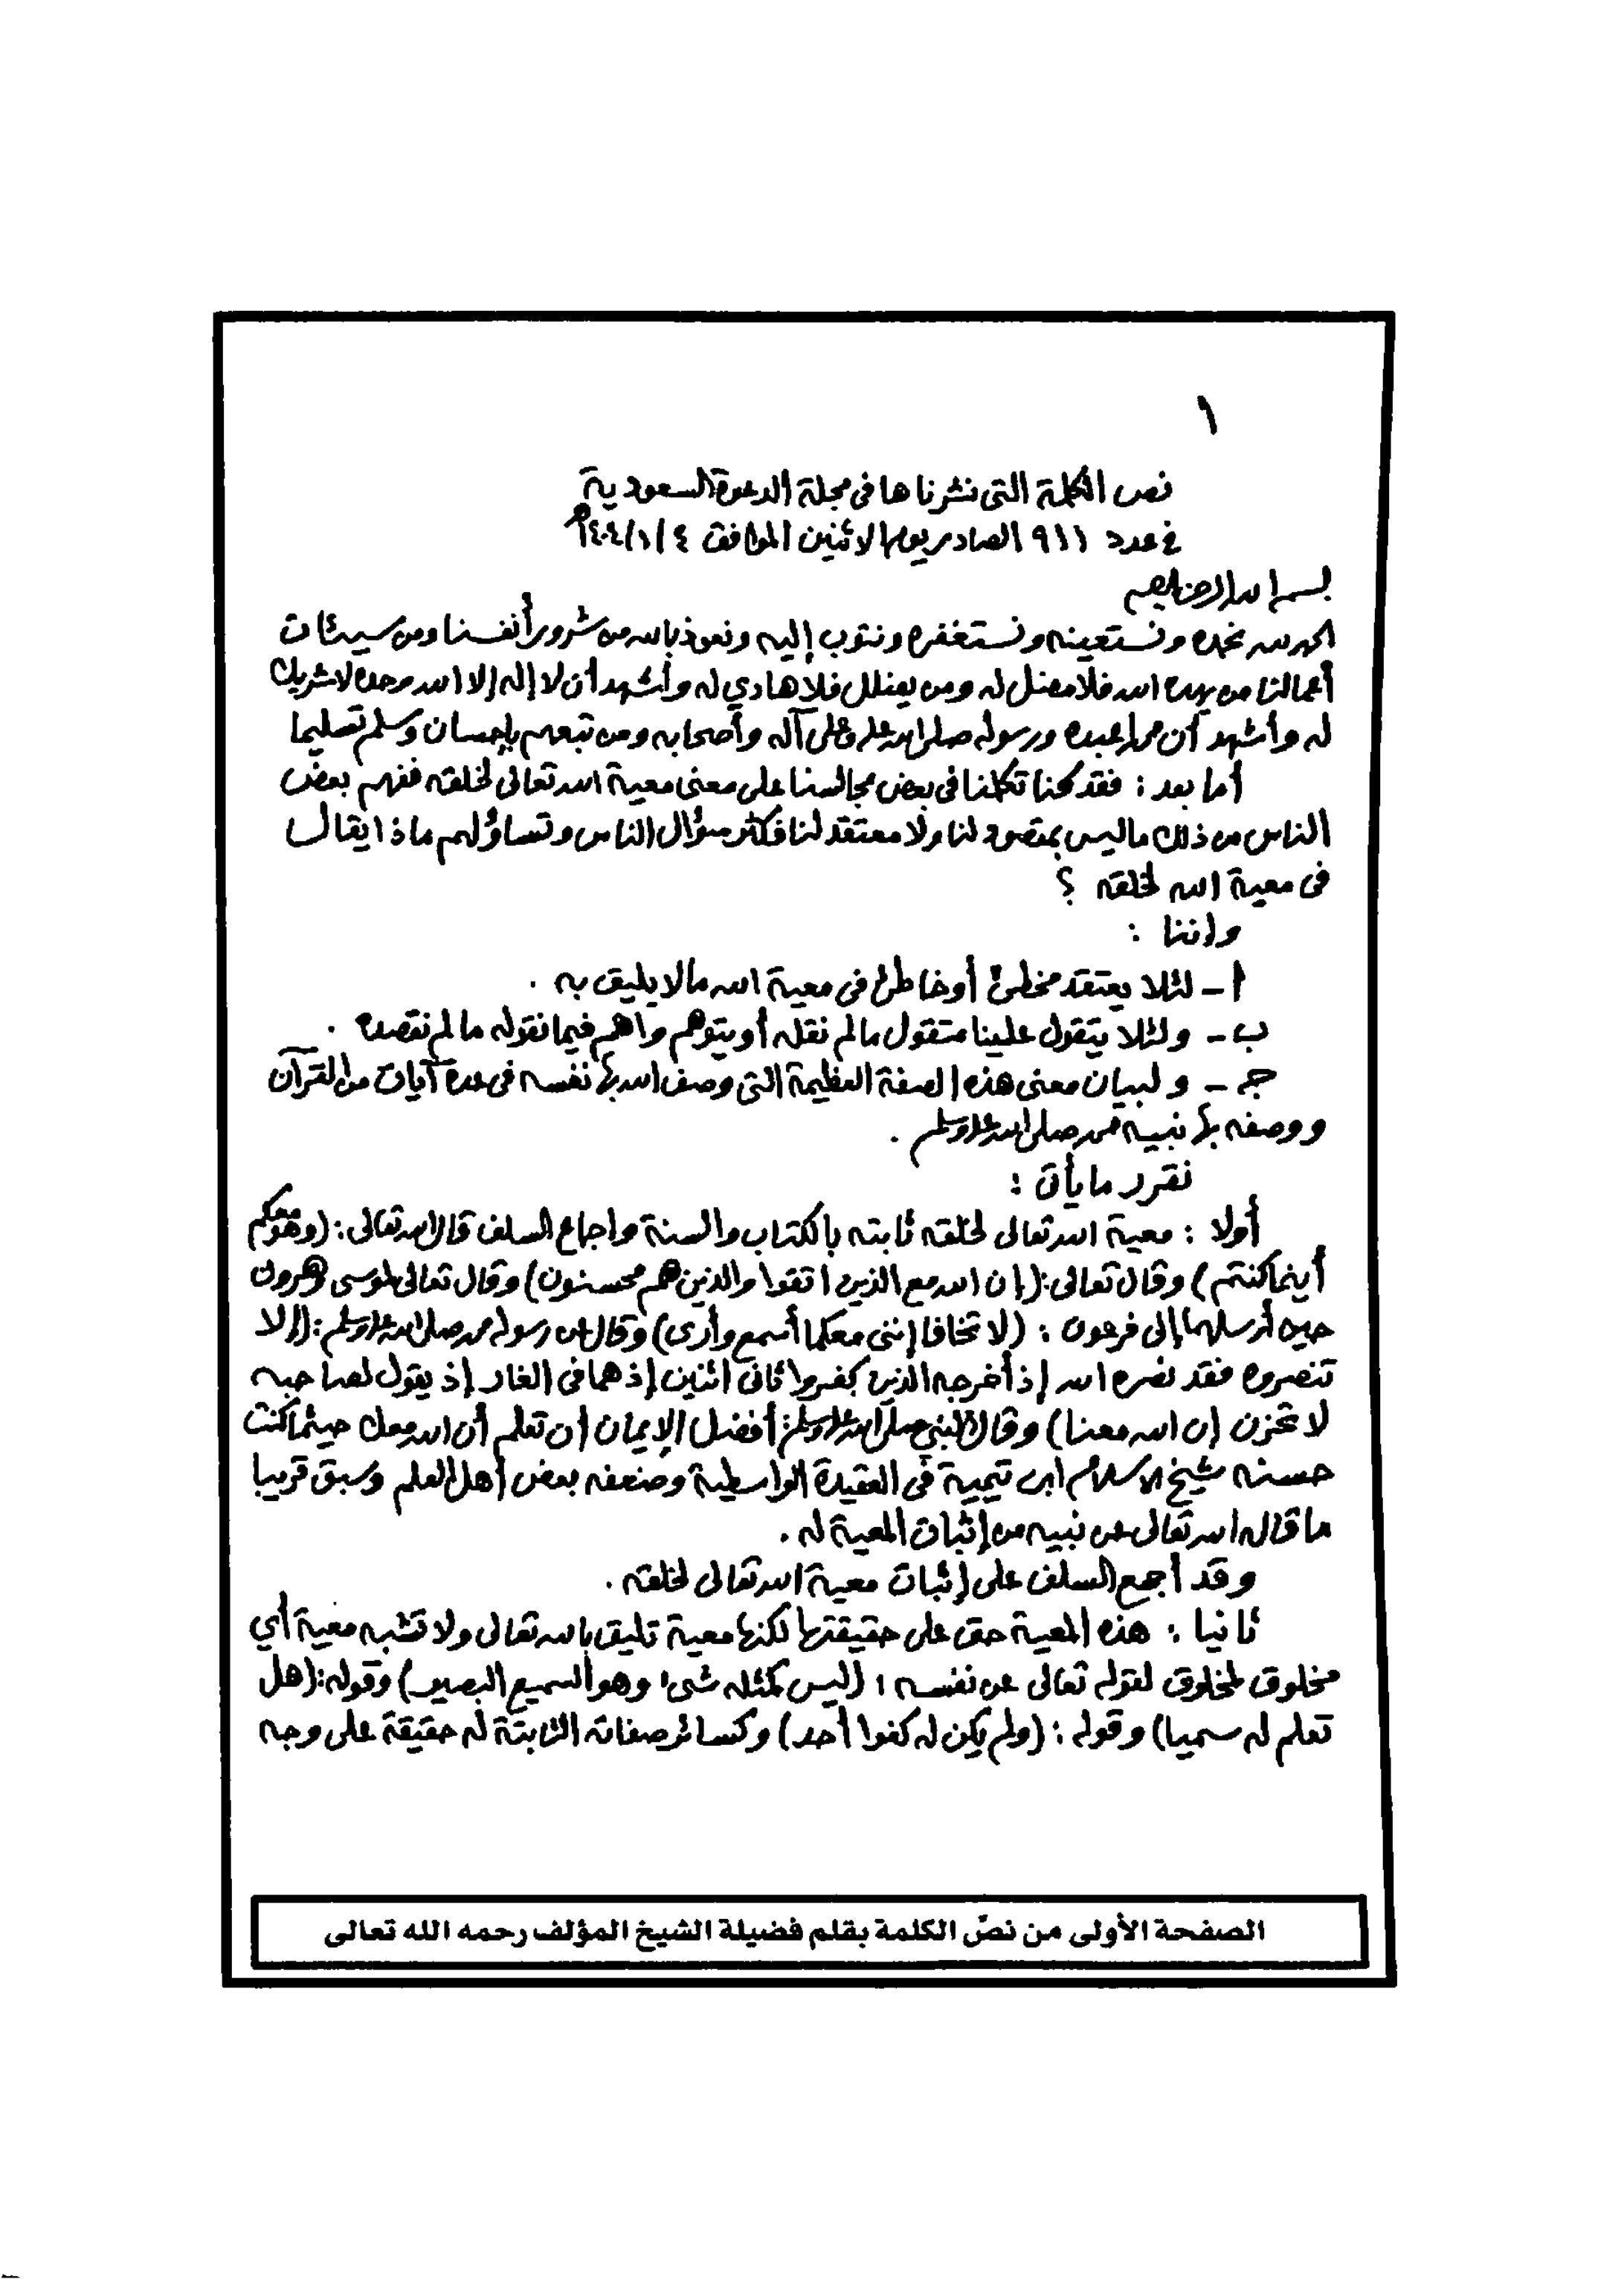 ١
نص الكلمة التى نشرناها فى مجلة الدعوة السعودية
في عدد ٩١١ الصادر يوم الاثنين الموافق ٤/١/١٤٠٤هـ
بسم الله الرحمن الرحيم
الحمد لله نحمده ونستعينه ونستغفره ونتوب إليه ونعوذ بالله من شرور أنفسنا ومن سيئات
أعمالنا من يهده الله فلا مضل له ومن يضلل فلا هادي له وأشهد أن لا إله إلا الله وحده لا شريك
له وأشهد أن محمدا عبده ورسوله صلى الله عليه وعلى آله وأصحابه ومن تبعهم بإحسان وسلم تسليما
أما بعد : فقد كنا تكلمنا فى بعض مجالسنا على معنى معية الله تعالى لخلقه ففهم بعض
الناس من ذلك ما ليس بمقصود لنا ولا معتقد لنا فكثر سؤال الناس وتساؤلهم ماذا يقال
فى معية الله لخلقه ؟
وإننا :
أ - لئلا يعتقد مخطئ أو خاطئ فى معية الله مالا يليق به .
ب - ولئلا يتقول علينا متقول ما لم نقله أو يتوهم واهم فيما نقوله ما لم نقصده .
جـ - ولبيان معنى هذه الصفة العظيمة التى وصف الله بها نفسه فى عدة آيات من القرآن
ووصفه بها نبيه محمد صلى الله عليه وسلم .
نقرر ما يأتى :
أولا : معية الله تعالى لخلقه ثابته بالكتاب والسنة واجماع السلف قال الله تعالى : (وهو معكم
أينما كنتم) وقال تعالى : (إن الله مع الذين اتقوا والذين هم محسنون) وقال تعالى لموسى وهرون
حين أرسلهما إلى فرعون : (لا تخافا إننى معكما أسمع وأرى) وقال عن رسوله محمد صلى الله عليه وسلم : (إلا
تنصروه فقد نصره الله إذ أخرجه الذين كفروا ثانى اثنين إذ هما فى الغار إذ يقول لصاحبه
لا تحزن إن الله معنا) وقال النبي صلى الله عليه وسلم : أفضل الإيمان أن تعلم أن الله معك حيثما كنت
حسنه شيخ الاسلام ابن تيمية في العقيدة الواسطية وضعفه بعض أهل العلم وسبق قريبا
ما قاله الله تعالى عن نبيه من إثبات المعية له .
وقد أجمع السلف على إثبات معية الله تعالى لخلقه .
ثانيا : هذه المعية حق على حقيقتها لكنها معية تليق بالله تعالى ولا تشبه معية أي
مخلوق لمخلوق لقوله تعالى عن نفسه : (ليس كمثله شئ وهو السميع البصير) وقوله : (هل
تعلم له سميا) وقوله : (ولم يكن له كفوا أحد) وكسائر صفاته الثابتة له حقيقة على وجه
الصفحة الأولى من نصّ الكلمة بقلم فضيلة الشيخ المؤلف رحمه الله تعالى